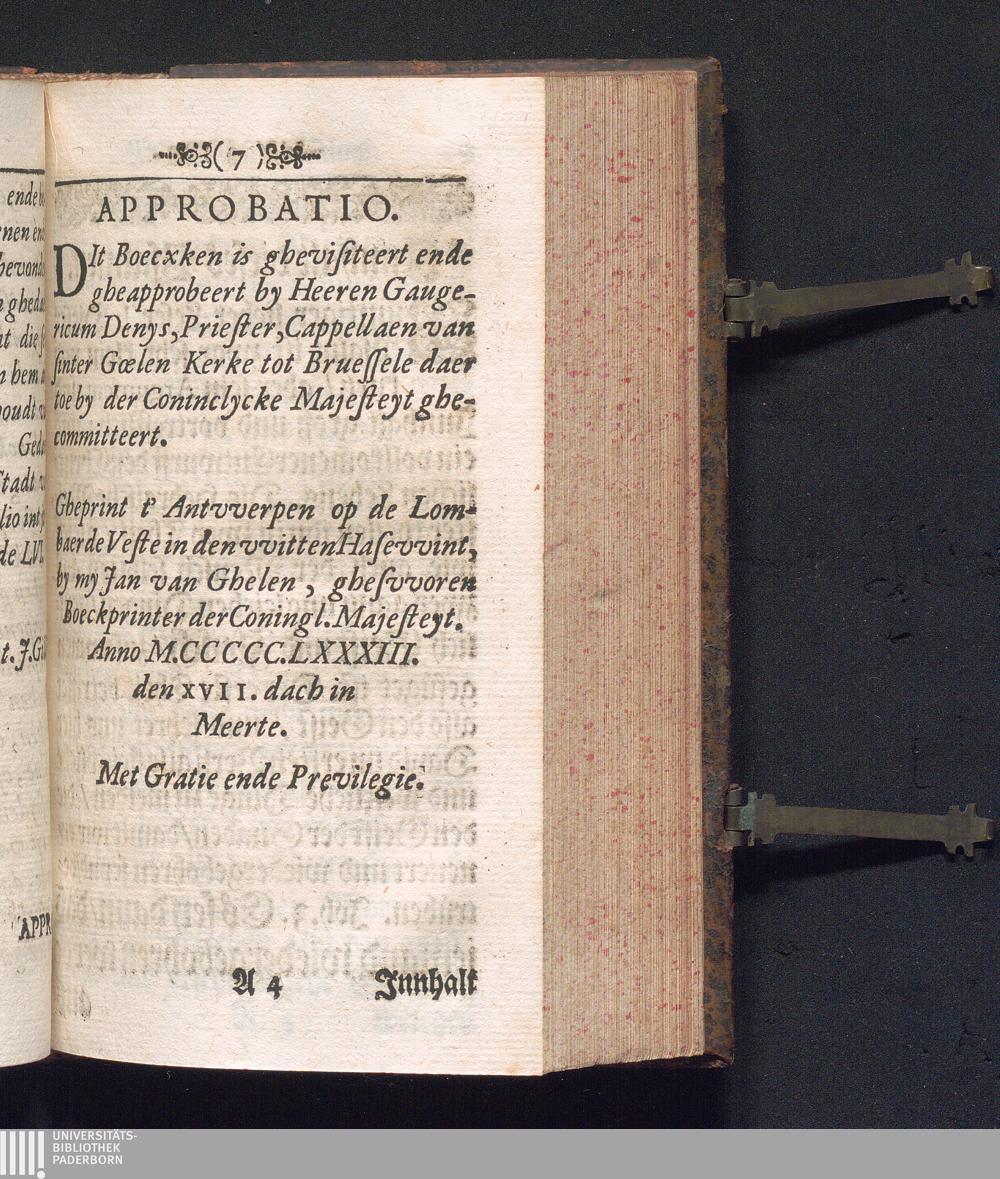 ( 7 )
APPROBATIO.
DIt Boecxken is gheviſiteert ende
gheapprobeert by Heeren Gauge-
ricum Denys, Prieſter, Cappellaen van
ſinter Gœlen Kerke tot Brueſſele daer
toe by der Coninclycke Majeſteyt ghe-
committeert.
Gheprint t' Antvverpen op de Lom-
baerde Veſte in den vvitten Haſevvint,
by my Jan van Ghelen, gheſvvoren
Boeckprinter der Coningl. Majeſteyt.
Anno M.CCCCC.LXXXIII.
den XVII. dach in
Meerte.
Met Gratie ende Previlegie.
A 4 Innhalt
ende
APPR
UNIVERSITÄTS-
BIBLIOTHEK
PADERBORN